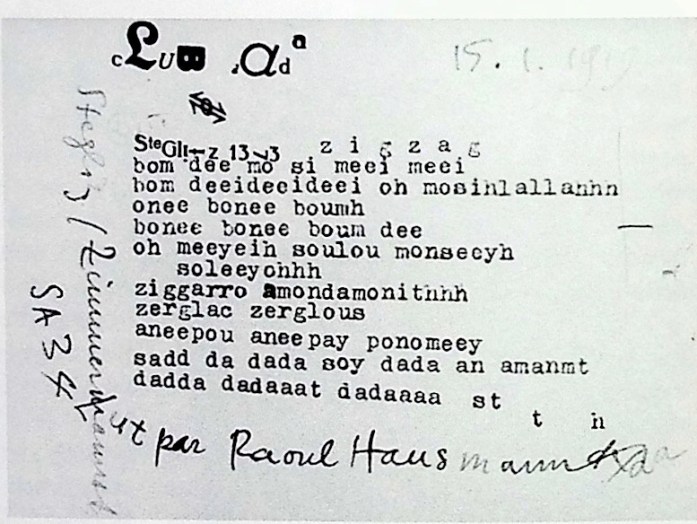 cLUB .dada
15. 1. 1919
SteGli—z 13 3 z i g z a g
bom dee mo si meei meei
bom deeideeideei oh mosinlallahhh
onee bonee boumh
bonee bonee boum dee
oh meeyeih soulou monseeyh
soleeyohhh
ziggarro amondamonithhh
zerglac zerglous
aneepou aneepay ponomeey
sadd da dada soy dada an amanmt
dadda dadaaat dadaaaa st
t h
Steglitz / Zimmermannst
SA 34
lut par Raoul Hausmann